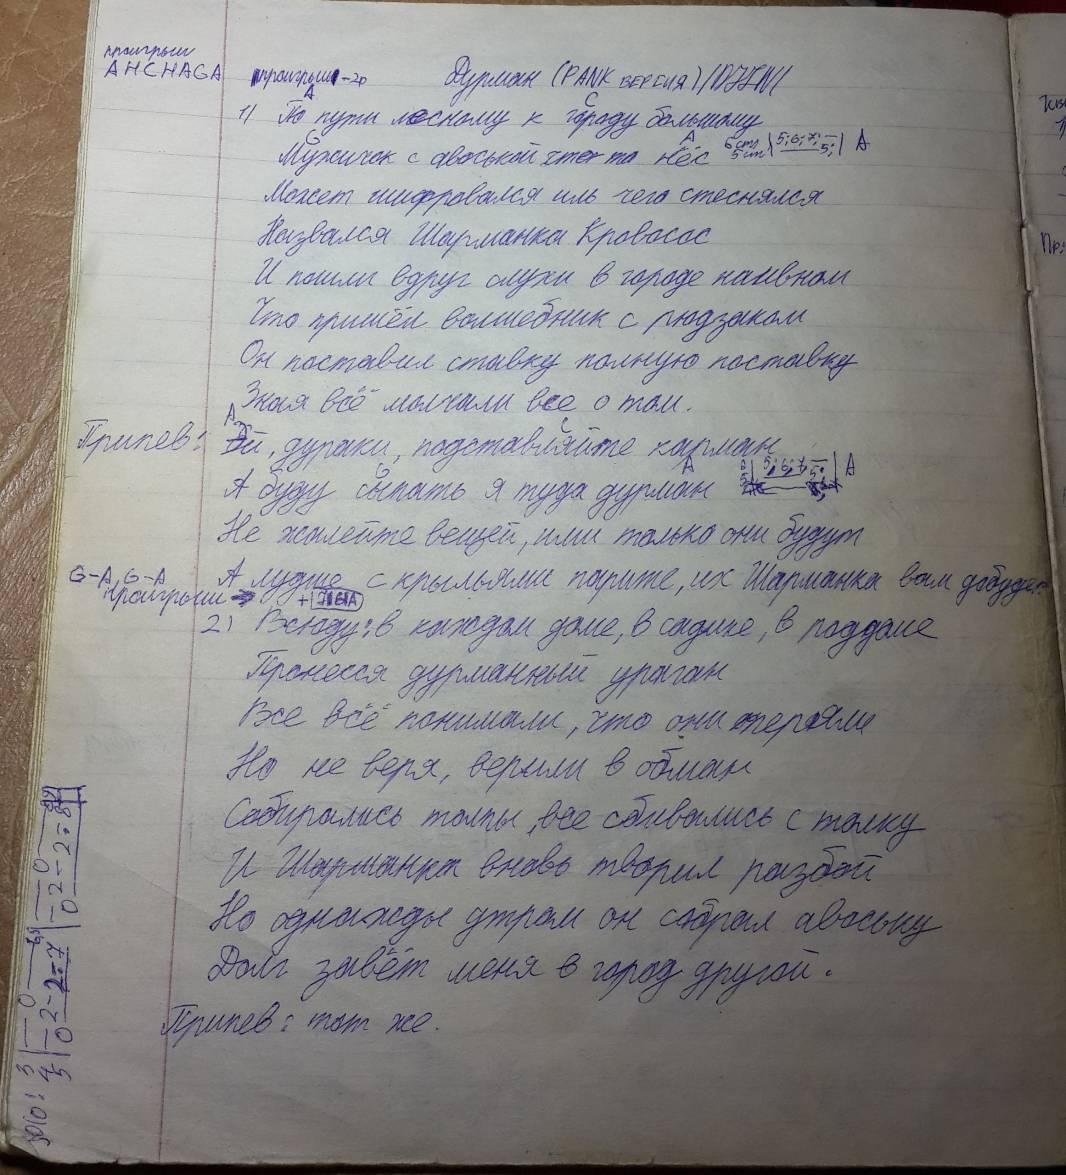 проигрыш
AHCHAGA
проигрыш - 20 Дурман (PANK версия)
A C
1) По пути лесному к городу большому
G A
Мужичок с авоськой что то нёс 6 ст 5 ст 5; 6; 7; 5; A
Может шифровался иль чего стеснялся
Назвался Шарманка Кровосос
И пошли вдруг слухи в городе наивном
Что пришёл волшебник с рюдзаком
Он поставил ставку полную поставку
Зная всё молчали все о том.
A C
Припев: Эй, дураки, подставляйте карман
G A 5; 6; 7; 5; A
А буду сыпать я туда дурман
Не жалейте вещей, или только они будут
G-A, G-A А лудше с крыльями парите, их Шарманка вам добудет.
проигрыш +
2) Всюду: в каждом доме, в садике, в роддоме
Пронесся дурманный ураган
Все всё понимали, что они теряли
Но не веря, верили в обман
Собирались толпы, все сбивались с толку
И Шарманка вновь творил разбой
Но однажды утром он собрал авоську
Долг завёт меня в город другой.
Припев: тот же.